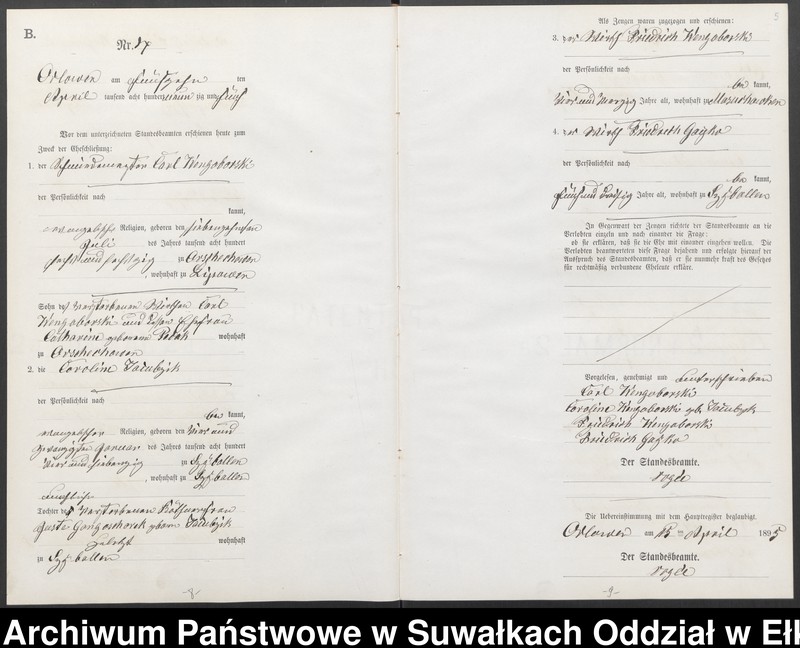 B.
Nr. 17
Orlowen am fünfzehn ten
April tausend acht hundert neun zig und fünf
Vor dem unterzeichneten Standesbeamten erschienen heute zum
Zweck der Eheschließung:
1. der Schmiedemeister Carl Kengoborski
der Persönlichkeit nach
kannt,
evangelischer Religion, geboren den siebenzehnten
Juli des Jahres tausend acht hundert
sechs und sechszig zu Orschechowen
, wohnhaft zu Lipowen
Sohn des verstorbenen Wirthen Carl
Kengoborski und dessen Ehefrau
Catharine geborene wohnhaft
zu Orschechowen
2. die Caroline Jakubzik
der Persönlichkeit nach
be kannt,
evangelischer Religion, geboren den vier und
zwanzigsten Januar des Jahres tausend acht hundert
vier und siebenzig zu Szyballen
, wohnhaft zu Szyballen
Tochter der verstorbenen
Guste geborene Jakubzik
zuletzt wohnhaft
zu Szyballen
-8-
5
Als Zeugen waren zugezogen und erschienen:
3. der Wirth Friedrich Kengoborski
der Persönlichkeit nach
be kannt,
vier und vierzig Jahre alt, wohnhaft zu
4. der Wirth Friedrich Gayko
der Persönlichkeit nach
be kannt,
fünf und dreißig Jahre alt, wohnhaft zu Szyballen
In Gegenwart der Zeugen richtete der Standesbeamte an die
Verlobten einzeln und nach einander die Frage:
ob sie erklären, daß sie die Ehe mit einander eingehen wollen. Die
Verlobten beantworteten diese Frage bejahend und erfolgte hierauf der
Ausspruch des Standesbeamten, daß er sie nunmehr kraft des Gesetzes
für rechtmäßig verbundene Eheleute erkläre.
Vorgelesen, genehmigt und unterschrieben
Carl Kengoborski
Caroline Kengoborski geb. Jakubzik
Friedrich Kengoborski
Friedrich Gayko
Der Standesbeamte.
Die Uebereinstimmung mit dem Hauptregister beglaubigt.
Orlowen am 15 ten April 1895
Der Standesbeamte.
-9-
Archiwum Państwowe w Suwałkach Oddział w Ełk